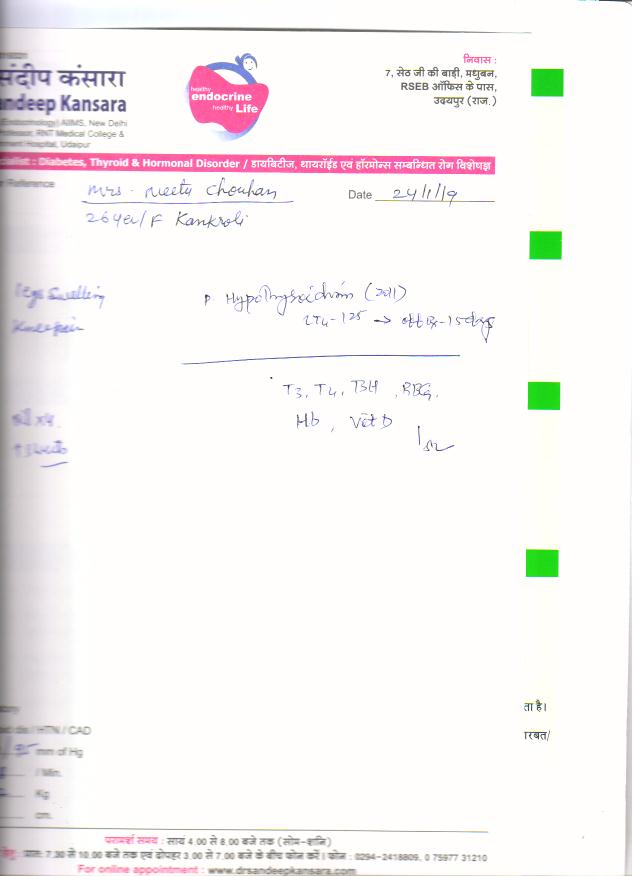 निवास :
संदीप कंसारा
7, सेठ जी की बाड़ी, मधुबन,
RSEB ऑफिस के पास,
उदयपुर (राज.)
andeep Kansara
healthy
endocrine
healthy Life
Endocrinology) AIIMS, New Delhi
rofessor, RNT Medical College &
ment Hospital, Udaipur
cialist : Diabetes, Thyroid & Hormonal Disorder / डायबिटीज, थायरॉईड एवं हॉरमोन्स सम्बन्धित रोग विशेषज्ञ
r Reference
Mrs. Neetu Chouhan
Date 24/1/19
/F Kankroli
legs Swelling
Hypothyroidism
Kneepain
LT4-125 → off Rx-15days
T3, T4, TSH, RBG,
Hb, Vit D
ता है।
ारबत/
tory
/ HTN / CAD
/95 mm of Hg
/ Min.
Kg
cm.
परामर्श समय : सायं 4.00 से 8.00 बजे तक (सोम-शनि)
हेतु : प्रातः 7.30 से 10.00 बजे तक एवं दोपहर 3.00 से 7.00 बजे के बीच फोन करें। फोन : 0294-2418809, 0 75977 31210
For online appointment : www.drsandeepkansara.com